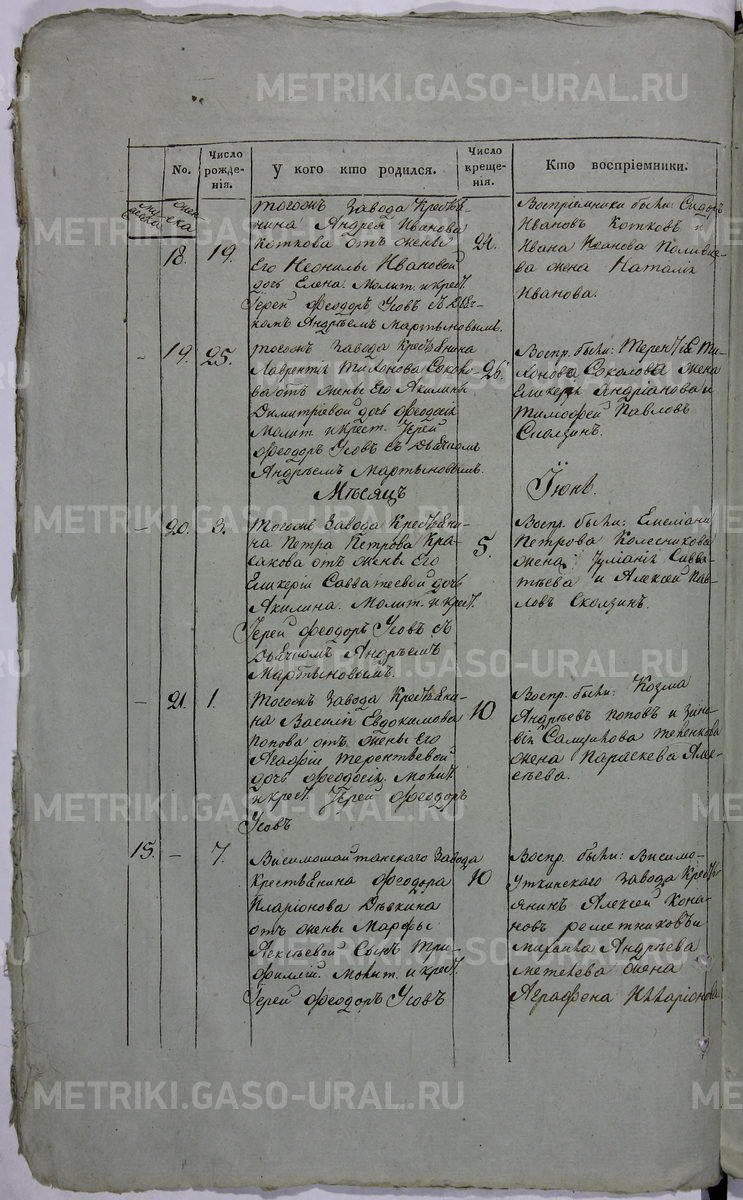 METRIKI.GASO-URAL.RU
No.
Число рожде-нія.
У кого кто родился.
Число креще-нія.
Кто воспріемники.
муж.
женска
18.
19.
тогожъ Завода Крестья-
нина Андрея Иванова
Коткова отъ жены
Его Неонилы Ивановой
дочь Елена. Молит. и крест.
Іерей Феодоръ Усовъ съ Дьяч-
комъ Андрѣемъ Мартыновымъ.
24.
Воспріемники были: Сидоръ
Ивановъ Котковъ и
Ивана Иванова
жена Наталія
Иванова.
19.
25.
тогожъ Завода Крестьянина
Лаврентія Тихонова Соколо-
ва отъ жены Его Акилины
Димитріевой дочь Феодосія
Молит. и крест. Іерей
Феодоръ Усовъ съ Дьячкомъ
Андрѣемъ Мартыновымъ.
26.
Воспр. были: Терентія Ти-
хонова Соколова жена
Гликерія Андріанова и
Тимофей Павловъ
Сколзинъ.
Мѣсяцъ
Іюнь.
20.
3.
Тогожъ Завода Крестьяни-
на Петра Петрова Кра-
сакова отъ жены Его
Гликеріи Савватеевой дочь
Акилина. Молит. и крест.
Іерей Феодоръ Усовъ съ
Дьячкомъ Андрѣемъ
Мартыновымъ.
5.
Воспр. были: Емеліана
Петрова Колесникова
жена Іуліанія Савва-
тѣева и Алексей Пав-
ловъ Сколзинъ.
21.
1.
Тогожъ Завода Крестьяни-
на Василія Евдокимова
Попова отъ жены Его
Агафіи Терентьевой
дочь Феодосія. Молит.
и крест. Іерей Феодоръ
Усовъ
10
Воспр. были: Козма
Андрѣевъ Поповъ и Зино-
вія
жена Параскева Алек-
сѣева.
15.
7.
Висимошайтанскаго Завода
Крестьянина Феодора
Иларіонова Дѣвкина
отъ жены Марфы
Алексѣевой сынъ Три-
филлій. Молит. и крест.
Іерей Феодоръ Усовъ
10
Воспр. были: Висимо-
Уткинскаго Завода Кресть-
янинъ Алексей Коно-
новъ Решетниковъ и
Михаила Андрѣева
жена
Аграфена Илларіонова